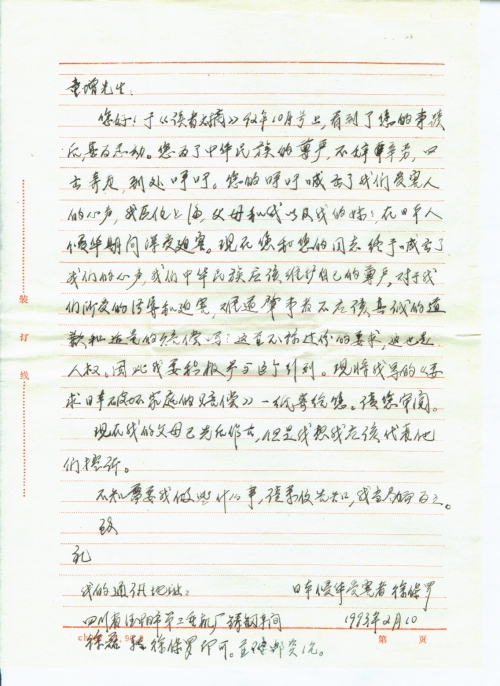 童增先生:
您好!于《读者文摘》92年10月号上,看到了您的事迹
后,甚为感动。您为了中华民族的尊严,不辞辛劳,四
去奔走,到处呼吁。您的呼吁喊出了我们受害人
的心声,我居住上海,父母和我以及我的姊,在日本人
侵华期间深受迫害。现在您和您的同志终于喊出了
我们的心声,我们中华民族应该维护自己的尊严,对于我
们所受的侮辱和迫害,难道肇事者不应该真诚的道
歉和 的赔偿吗?这真不能过份的要求,这也是
人权。因此我要积极参与这个行列。现将我写的《要
求日本破坏家庭的赔偿》一纸寄给您。请您审阅。
现在我的父母已先后作古,但是我想我应该代表他
们控诉。
不知需要我做些什么事,请来信告知,我当尽
致
礼
我的通讯地址: 日本侵华受害者 徐保罗
四川省德阳市第二重机厂铸钢车间 1993年2月10
徐磊 转 徐保罗即可。
装
订
线
第 页